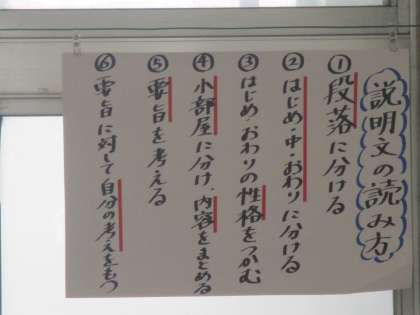 説明文の読み方
①段落に分ける
②はじめ・中・おわりに分ける
③はじめ・おわりの性格をつかむ
④小部屋に分け、内容をまとめる
⑤要旨を考える
⑥要旨に対して自分の考えをもつ